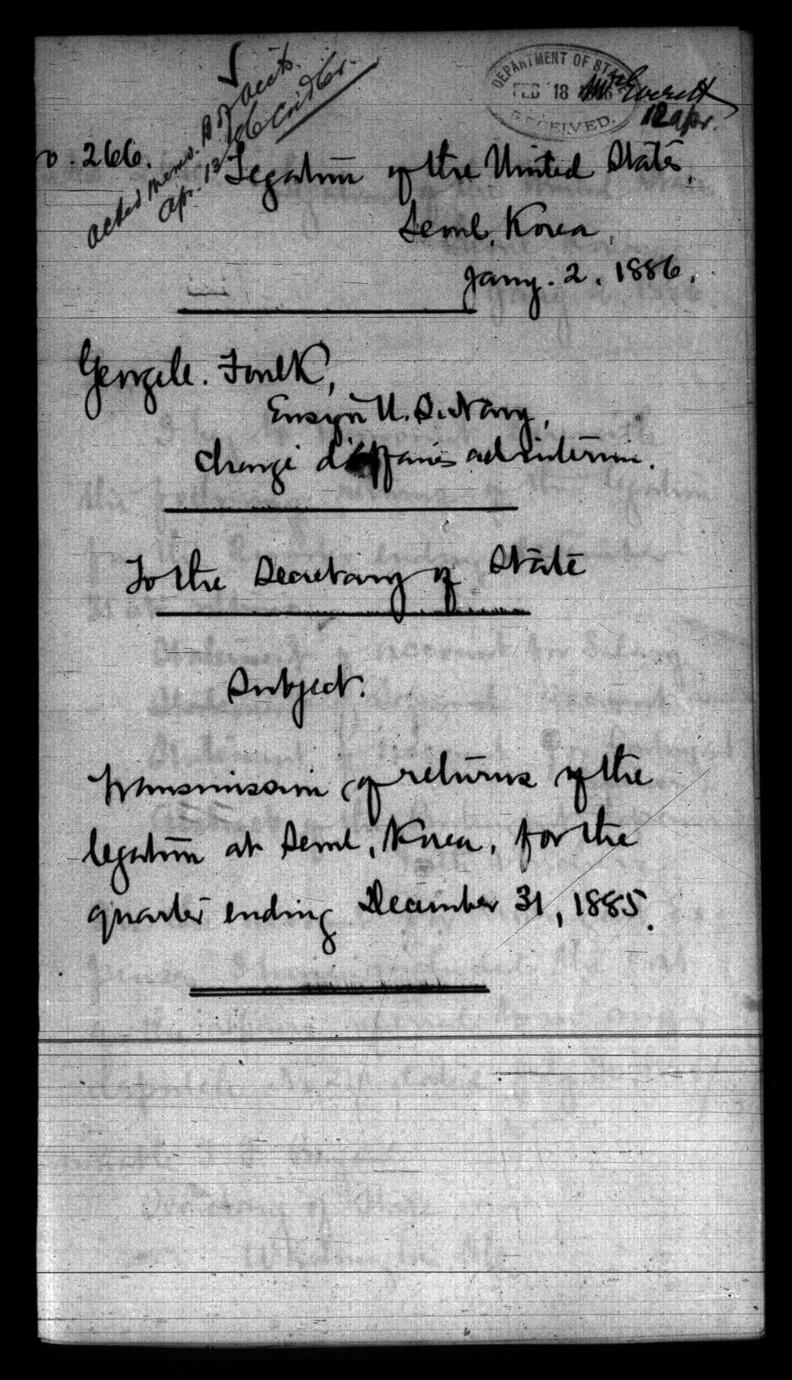 DEPARTMENT OF STATE
FEB 18 1886
RECEIVED.
Mr Everett
12 apr.
acked memo. B of accts.
Apr. 12/86 Cridler.
o. 266.
Legation of the United States,
Seoul, Korea,
Jany. 2. 1886.
George C. Foulk,
Ensign U.S. Navy,
Chargé d'affaires ad interim.
To the Secretary of State
Subject.
Transmission of returns of the
legation at Seoul, Korea, for the
quarter ending December 31, 1885.